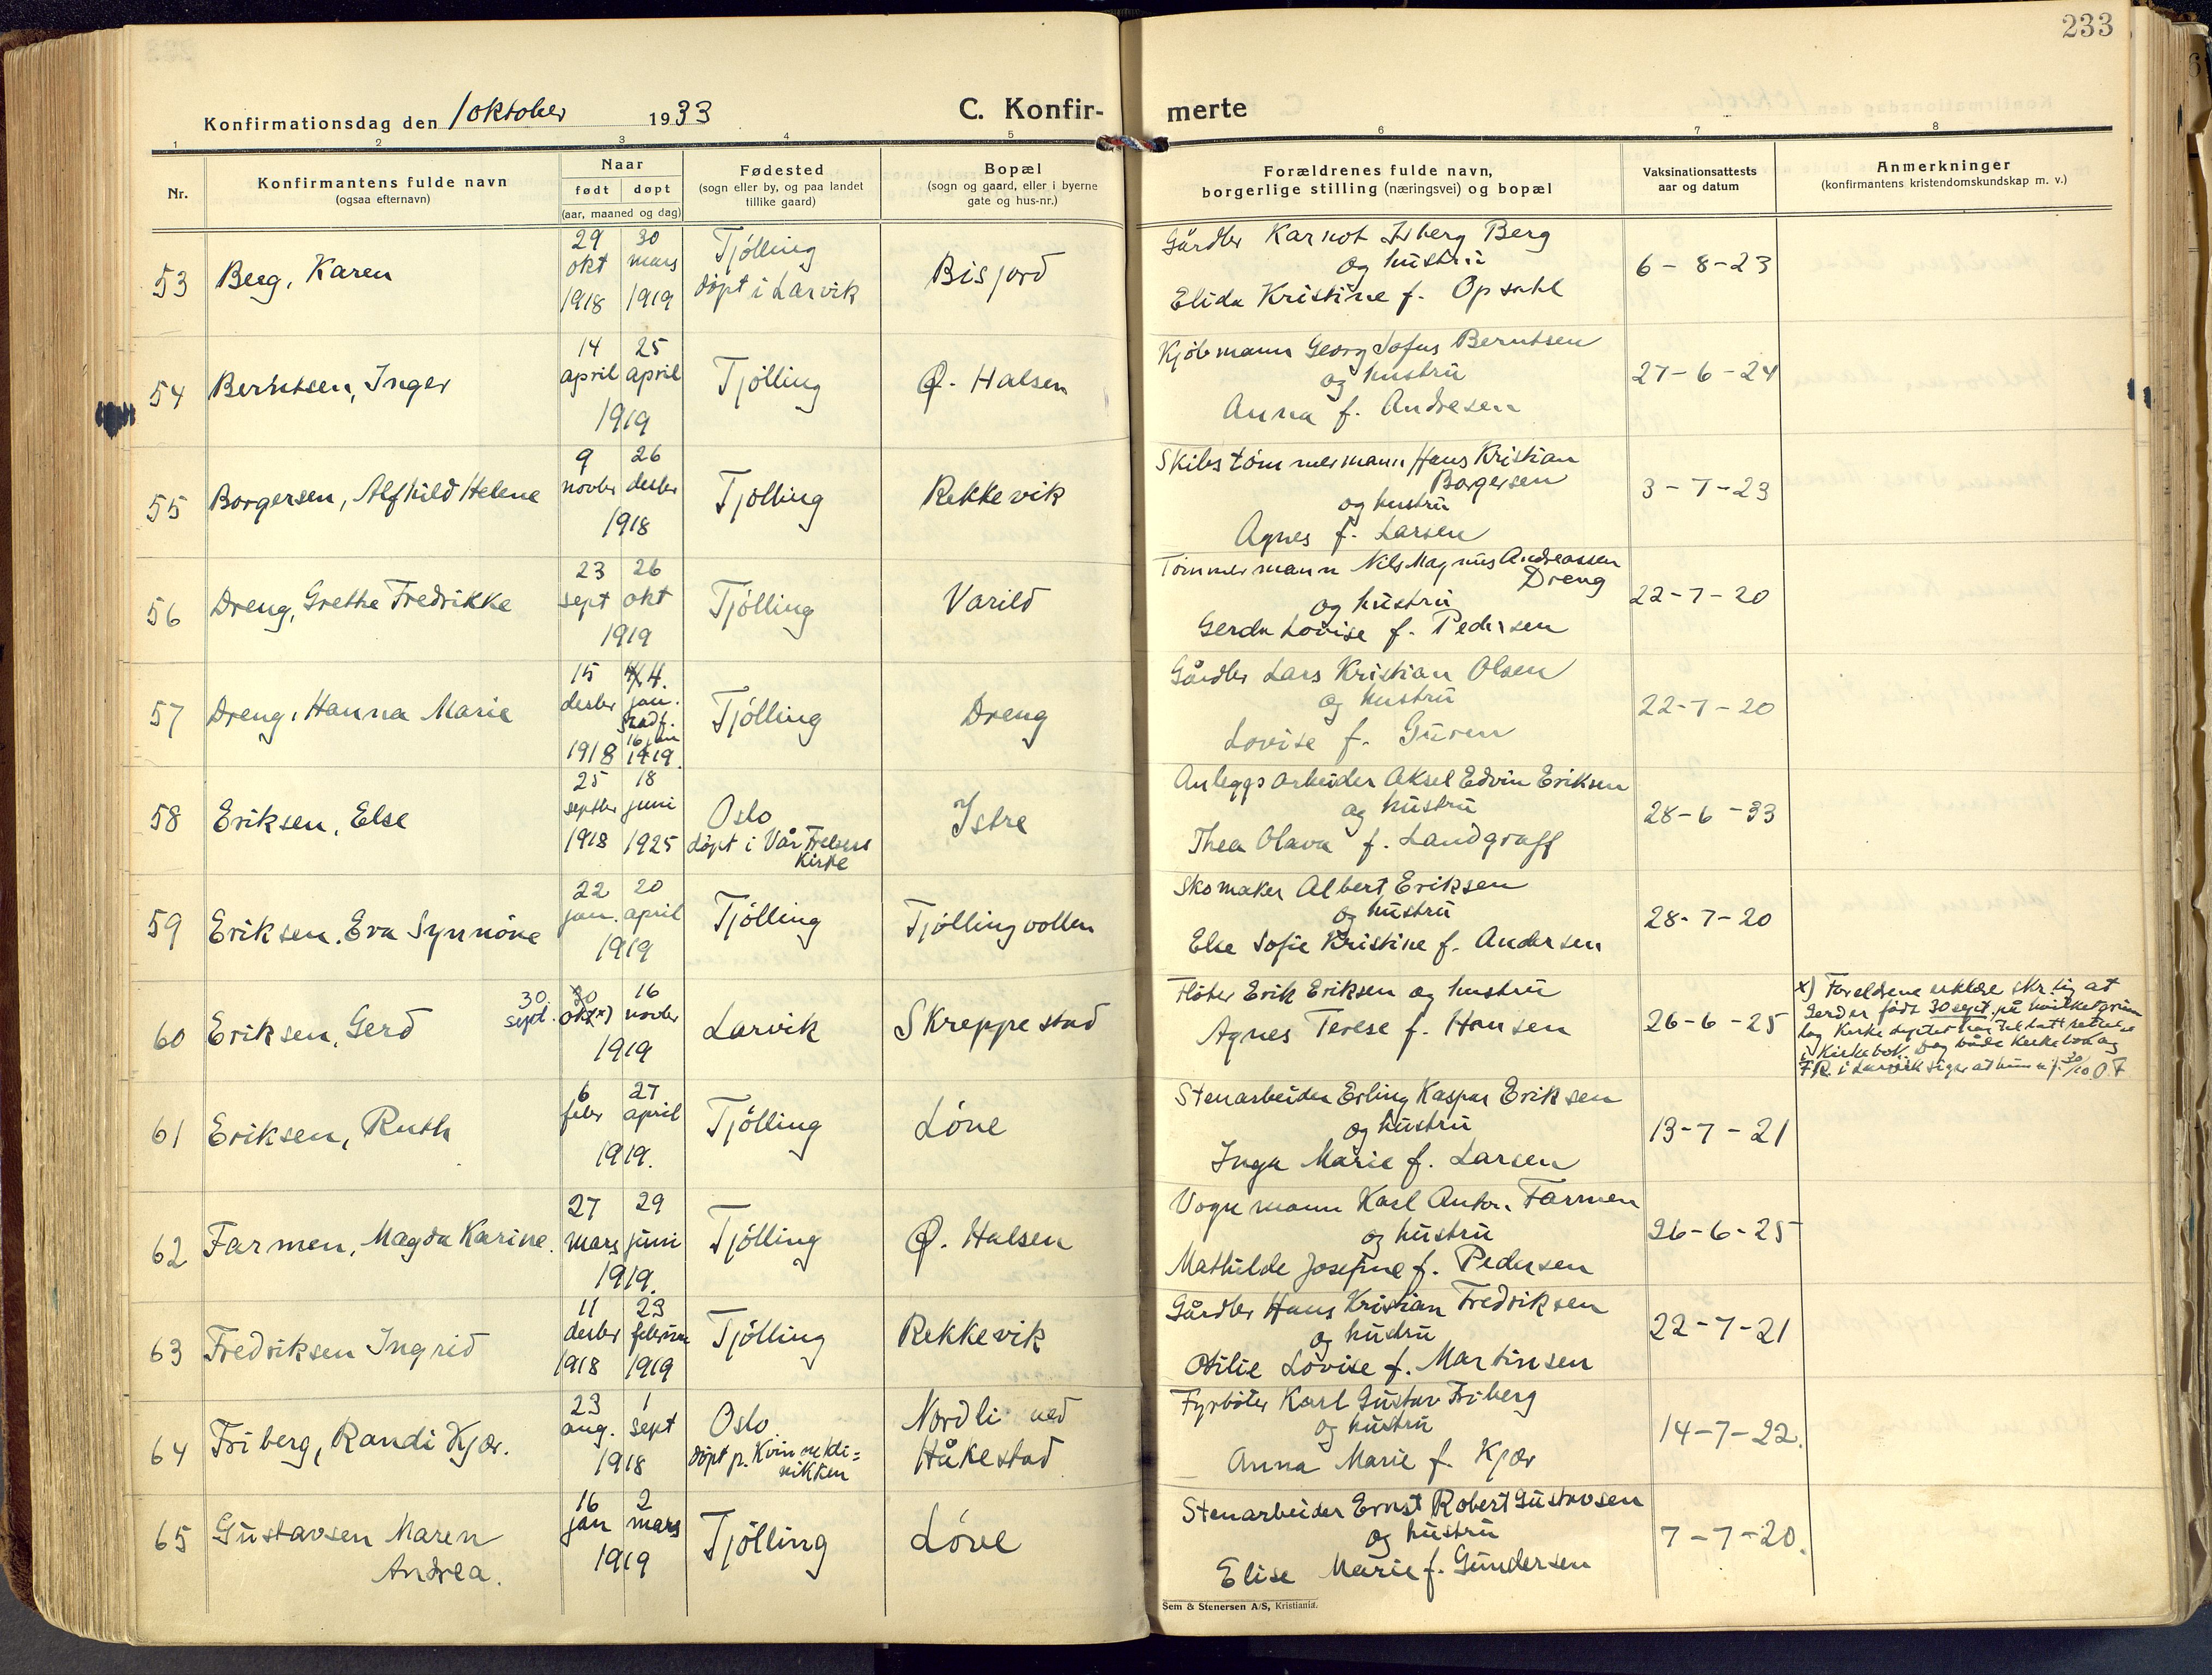 233
Konfirmationsdag den 1 oktober 1933
C. Konfir- merte
1 2 3 4 5 6 7 8
Nr.
Konfirmantens fulde navn
(ogsaa efternavn)
Naar
født døpt
(aar, maaned og dag)
Fødested
(sogn eller by, og paa landet
tillike gaard)
Bopæl
(sogn og gaard, eller i byerne
gate og hus-nr.)
Forældrenes fulde navn,
borgerlige stilling (næringsvei) og bopæl
Vaksinationsattests
aar og datum
Anmerkninger
(konfirmantens kristendomskundskap m. v.)
53 Berg, Karen
29 30
okt mars
1918 1919
Tjølling
døpt i Larvik
Bisjord
Gårdbr Karnot Berg
og hustru
Elida Kristine f. Opsahl
6-8-23
54 Berntsen, Inger
14 25
april april
1919
Tjølling
Ø. Halsen
Kjøbmann Georg Sofus Berntsen
og hustru
Anna f. Andresen
27-6-24
55 Borgersen, Alfhild Helene
9 26
novbr desbr
1918
Tjølling
Rekkevik
Skibstømmermann Hans Kristian
Borgersen
og hustru
Agnes f. Larsen
3-7-23
56 Dreng, Grethe Fredrikke
23 26
sept okt
1919
Tjølling
Varild
Tømmermann Nils Magnus Andreassen
Dreng
og hustru
Gerda Lovise f. Pedersen
22-7-20
57 Dreng, Hanna Marie
15 4.
desbr jan.
stadf.
16 jan
1918 1919.
Tjølling
Dreng
Gårdbr Lars Kristian Olsen
og hustru
Lovise f. Guren
22-7-20
58 Eriksen, Else
25 18
septbr juni
1918 1925
Oslo
døpt i Vår Frelsers
Kirke
Istre
Anleggsarbeider Aksel Edvin Eriksen
og hustru
Thea Olava f. Landgraff
28-6-33
59 Eriksen, Eva Synnöve
22 20
jan. april
1919
Tjølling
Tjøllingvollen
Skomaker Albert Eriksen
og hustru
Else Sofie Kristine f. Andersen
28-7-20
60 Eriksen, Gerd
30. 30 16
sept. okt x) novbr
1919
Larvik
Skreppestad
Fløter Erik Eriksen og hustru
Agnes Terese f. Hansen
26-6-25
x) Foreldrene erklære skr.lig at
Gerd er født 30 sept, på hvilket grunn
lag Kirkedept. har tillatt rettelse
i Kirkebok. Dog både Kirkebok og
F.R. i Larvik siger at hun er f. 30/10 O.F
61 Eriksen, Ruth
6 27
febr april
1919.
Tjølling
Løve
Stenarbeider Erling Kaspar Eriksen
og hustru
Inga Marie f. Larsen
13-7-21
62 Farmen, Magda Karine.
27 29
mars juni
1919.
Tjølling
Ø. Halsen
Vognmann Karl Anton Farmen
og hustru
Mathilde Josefine f. Pedersen
26-6-25
63 Fredriksen Ingrid
11 23
desbr februar
1918 1919
Tjølling
Rekkevik
Gårdbr Hans Kristian Fredriksen
og hustru
Otilie Lovise f. Martinsen
22-7-21
64 Friberg, Randi Kjær.
23 1
aug. sept
1918
Oslo
døpt p. Kvinnekli=
nikken
Nordli ved
Håkestad
Fyrbøter Karl Gustav Friberg
og hustru
Anna Marie f. Kjær
14-7-22.
65 Gustavsen Maren
Andrea.
16 2
jan mars
1919
Tjølling
Løve
Stenarbeider Ernst Robert Gustavsen
og hustru
Elise Marie f. Gundersen
7-7-20.
Sem & Stenersen A/S, Kristiania.